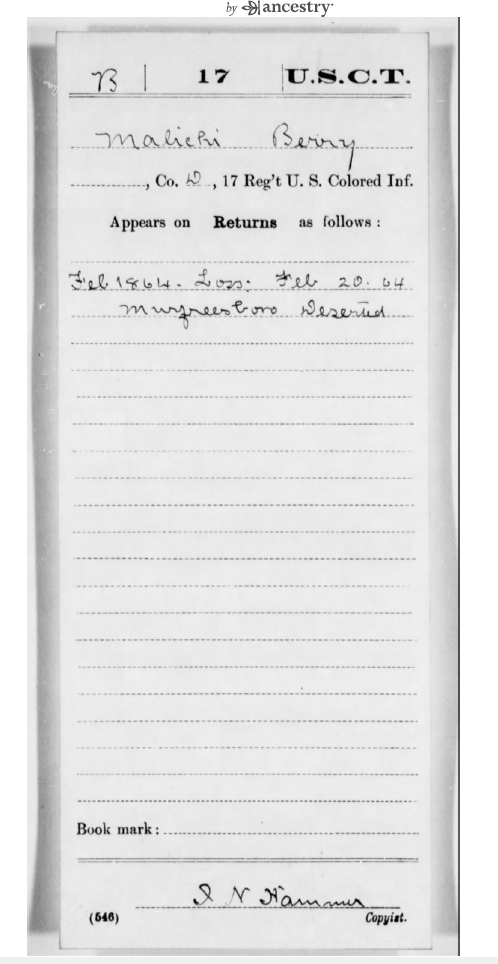 by ancestry
B | 17 | U.S.C.T.
Malichi Berry
, Co. D, 17 Reg't U. S. Colored Inf.
Appears on Returns as follows:
Feb 1864 - Loss: Feb 20. 64
Murfreesboro Deserted
Book mark:
I N Hammer
(546) Copyist.